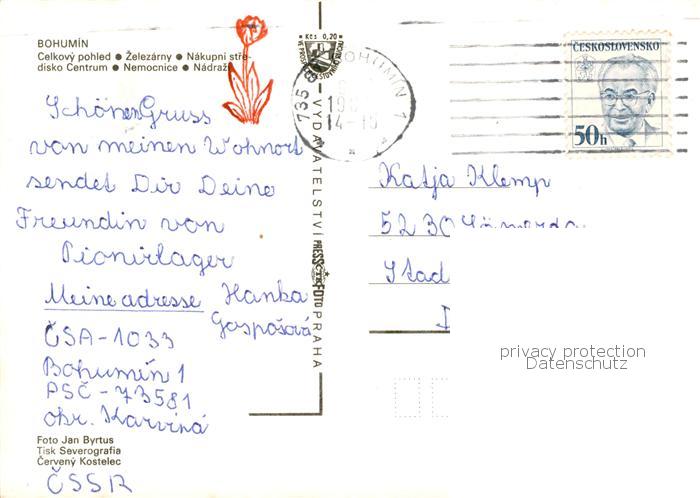 BOHUMÍN
Celkový pohled ● Železárny ● Nákupní stře-
disko Centrum ● Nemocnice ● Nádraž
Schönen Gruss
von meinen Wohnort
sendet Dir Deine
Freundin von
Pionirlager
Meine adresse Hanka
Gaspošová
ČSA-1033
Bohumín 1
PSČ-73581
okr. Karviná
ČSSR
Foto Jan Byrtus
Tisk Severografia
Červený Kostelec
Kčs 0,20
VYDAVATELSTVÍ PRESSFOTO PRAHA
735 81 BOHUMÍN 1
ČESKOSLOVENSKO
50h
Katja Klemp
5230
Stad
privacy protection
Datenschutz